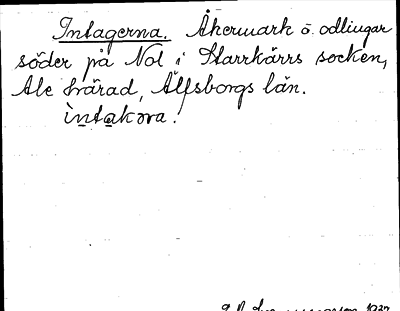 Intagerna. Åkermark o. odlingar
söder på Nol i Starrkärrs socken,
Ale härad, Älfsborgs län.
ìntakəra.